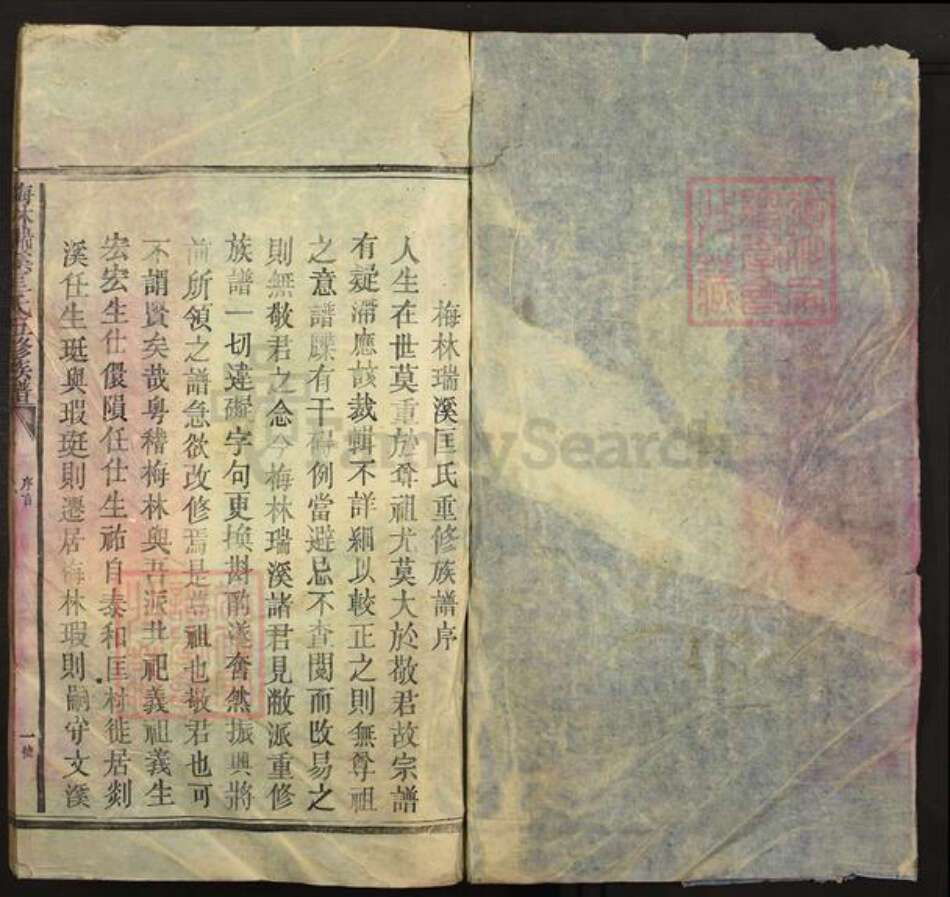 梅林瑞溪匡氏重修族譜序
人生在世莫重於尊祖尤莫大於敬君故宗譜
有疑滯應該裁輯不詳細以較正之則無尊祖
之意譜牒有干碍例當避忌不查閱而改易之
則無敬君之念今梅林瑞溪諸君見敝派重修
族譜一切違礙字句更換斟酌遂奮然振興將
前所領之譜急欲改修焉是尊祖也敬君也可
不謂賢矣哉粵稽梅林與吾派共祀義祖義生
宏宏生仕儇隕任仕生祐自泰和匡村徙居剡
溪任生珽與瑕珽則遷居梅林瑕則嗣守文溪
梅林瑞溪匡氏五修族譜
序首
一號
FamilySearch